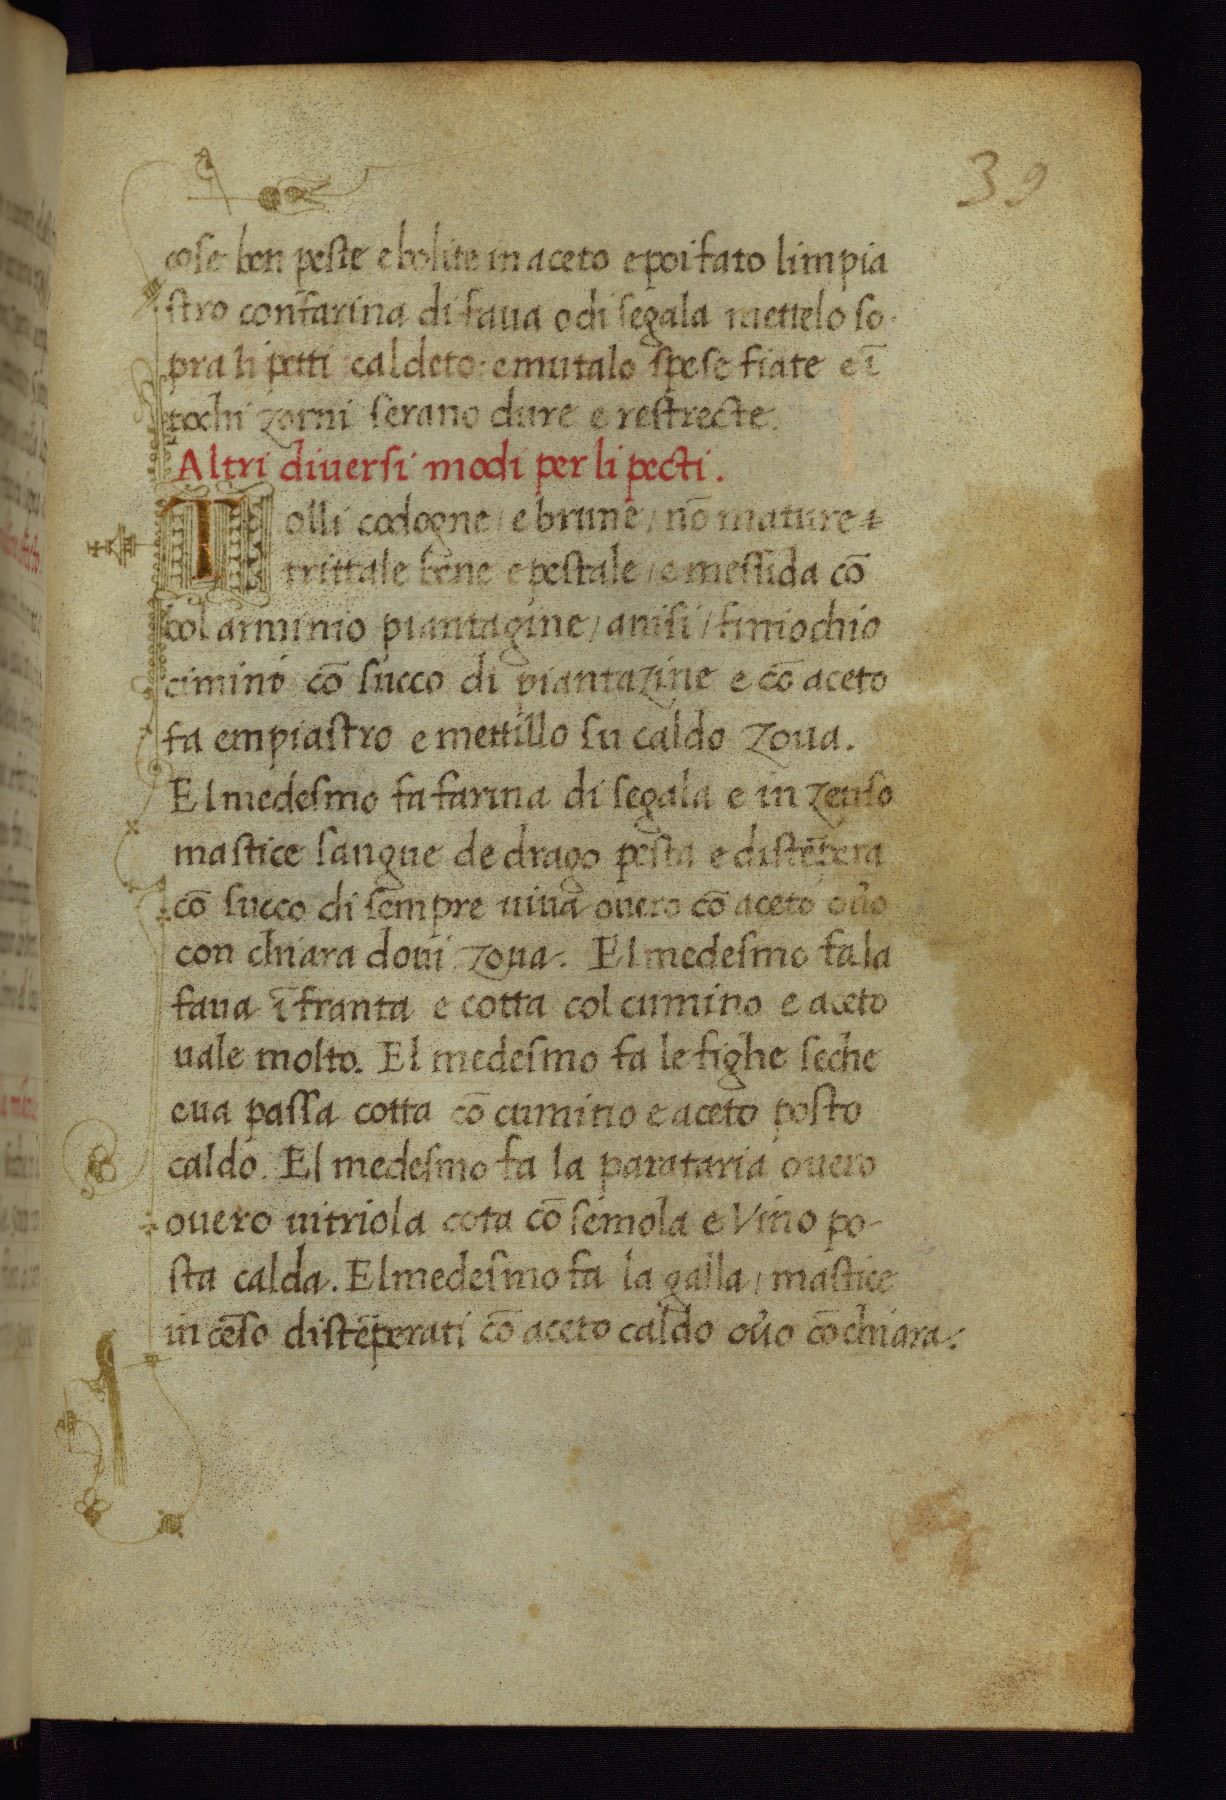 39
cose ben peste e bolite in aceto e poi fato limpia
stro con farina di faua o di segala mettelo so
pra li petti caldeto: e mutalo spese fiate e ī
pochi zorni serano dure e restrecte.
Altri diuersi modi per li pecti.
Tolli codogne / e brune / nō mature
trittale bene e pestale / e messida cō
bol arminio piantagine / anisi / finiochio
cimino cō succo di piantazine e cō aceto
fa empiastro e mettillo su caldo zoua.
El medesmo fa farina di segala e inzenso
mastice sangue de drago pesta e distēpera
cō succo di sempre uiua ouero cō aceto oūo
con chiara doui zoua. El medesmo fa la
faua īfranta e cotta col cumino e aceto
uale molto. El medesmo fa le fighe seche
e ua passa cotta cō cumino e aceto posto
caldo. El medesmo fa la parataria ouero
ouero uitriola cota cō semola e Vino po-
sta calda. El medesmo fa la galla / mastice
in cēso distēperati cō aceto caldo oūo cō chiara.